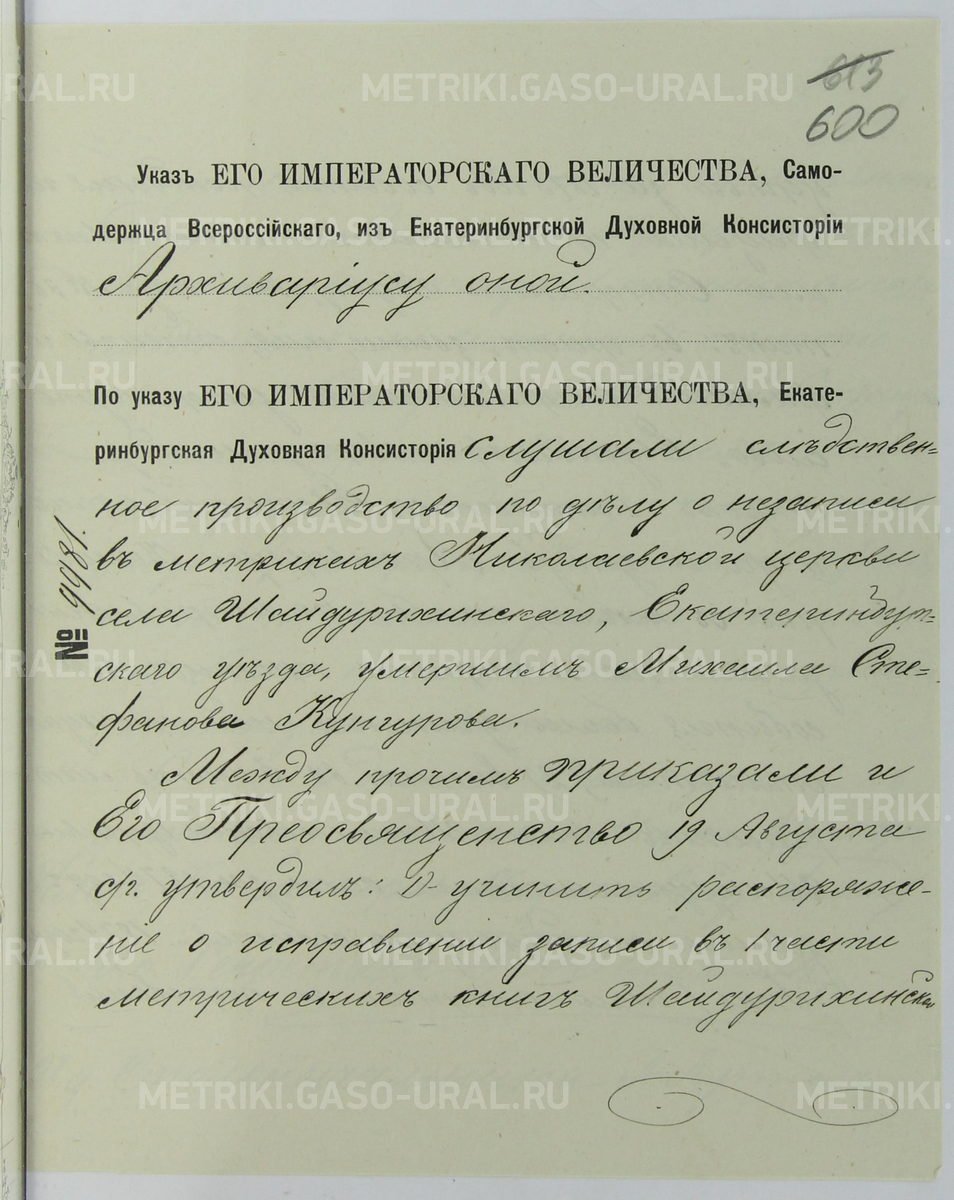 613
600
Указъ ЕГО ИМПЕРАТОРСКАГО ВЕЛИЧЕСТВА, Само-
держца Всероссійскаго, изъ Екатеринбургской Духовной Консисторіи
Архиваріусу оной.
По указу ЕГО ИМПЕРАТОРСКАГО ВЕЛИЧЕСТВА, Екате-
ринбургская Духовная Консисторія слушали слѣдствен-
ное производство по дѣлу о незаписи
въ метрикахъ Николаевской церкви
села Шайдурихинскаго, Екатеринбург-
скаго уѣзда, умершимъ Михаила Сте-
фанова Кунгурова.
Между прочимъ приказали и
Его Преосвященство 19 Августа
с/г. утвердилъ: 1) учинить распоряже-
ніе о исправленіи записи въ 1 части
метрическихъ книгъ Шайдурихинской
№ 9981.
METRIKI.GASO-URAL.RU